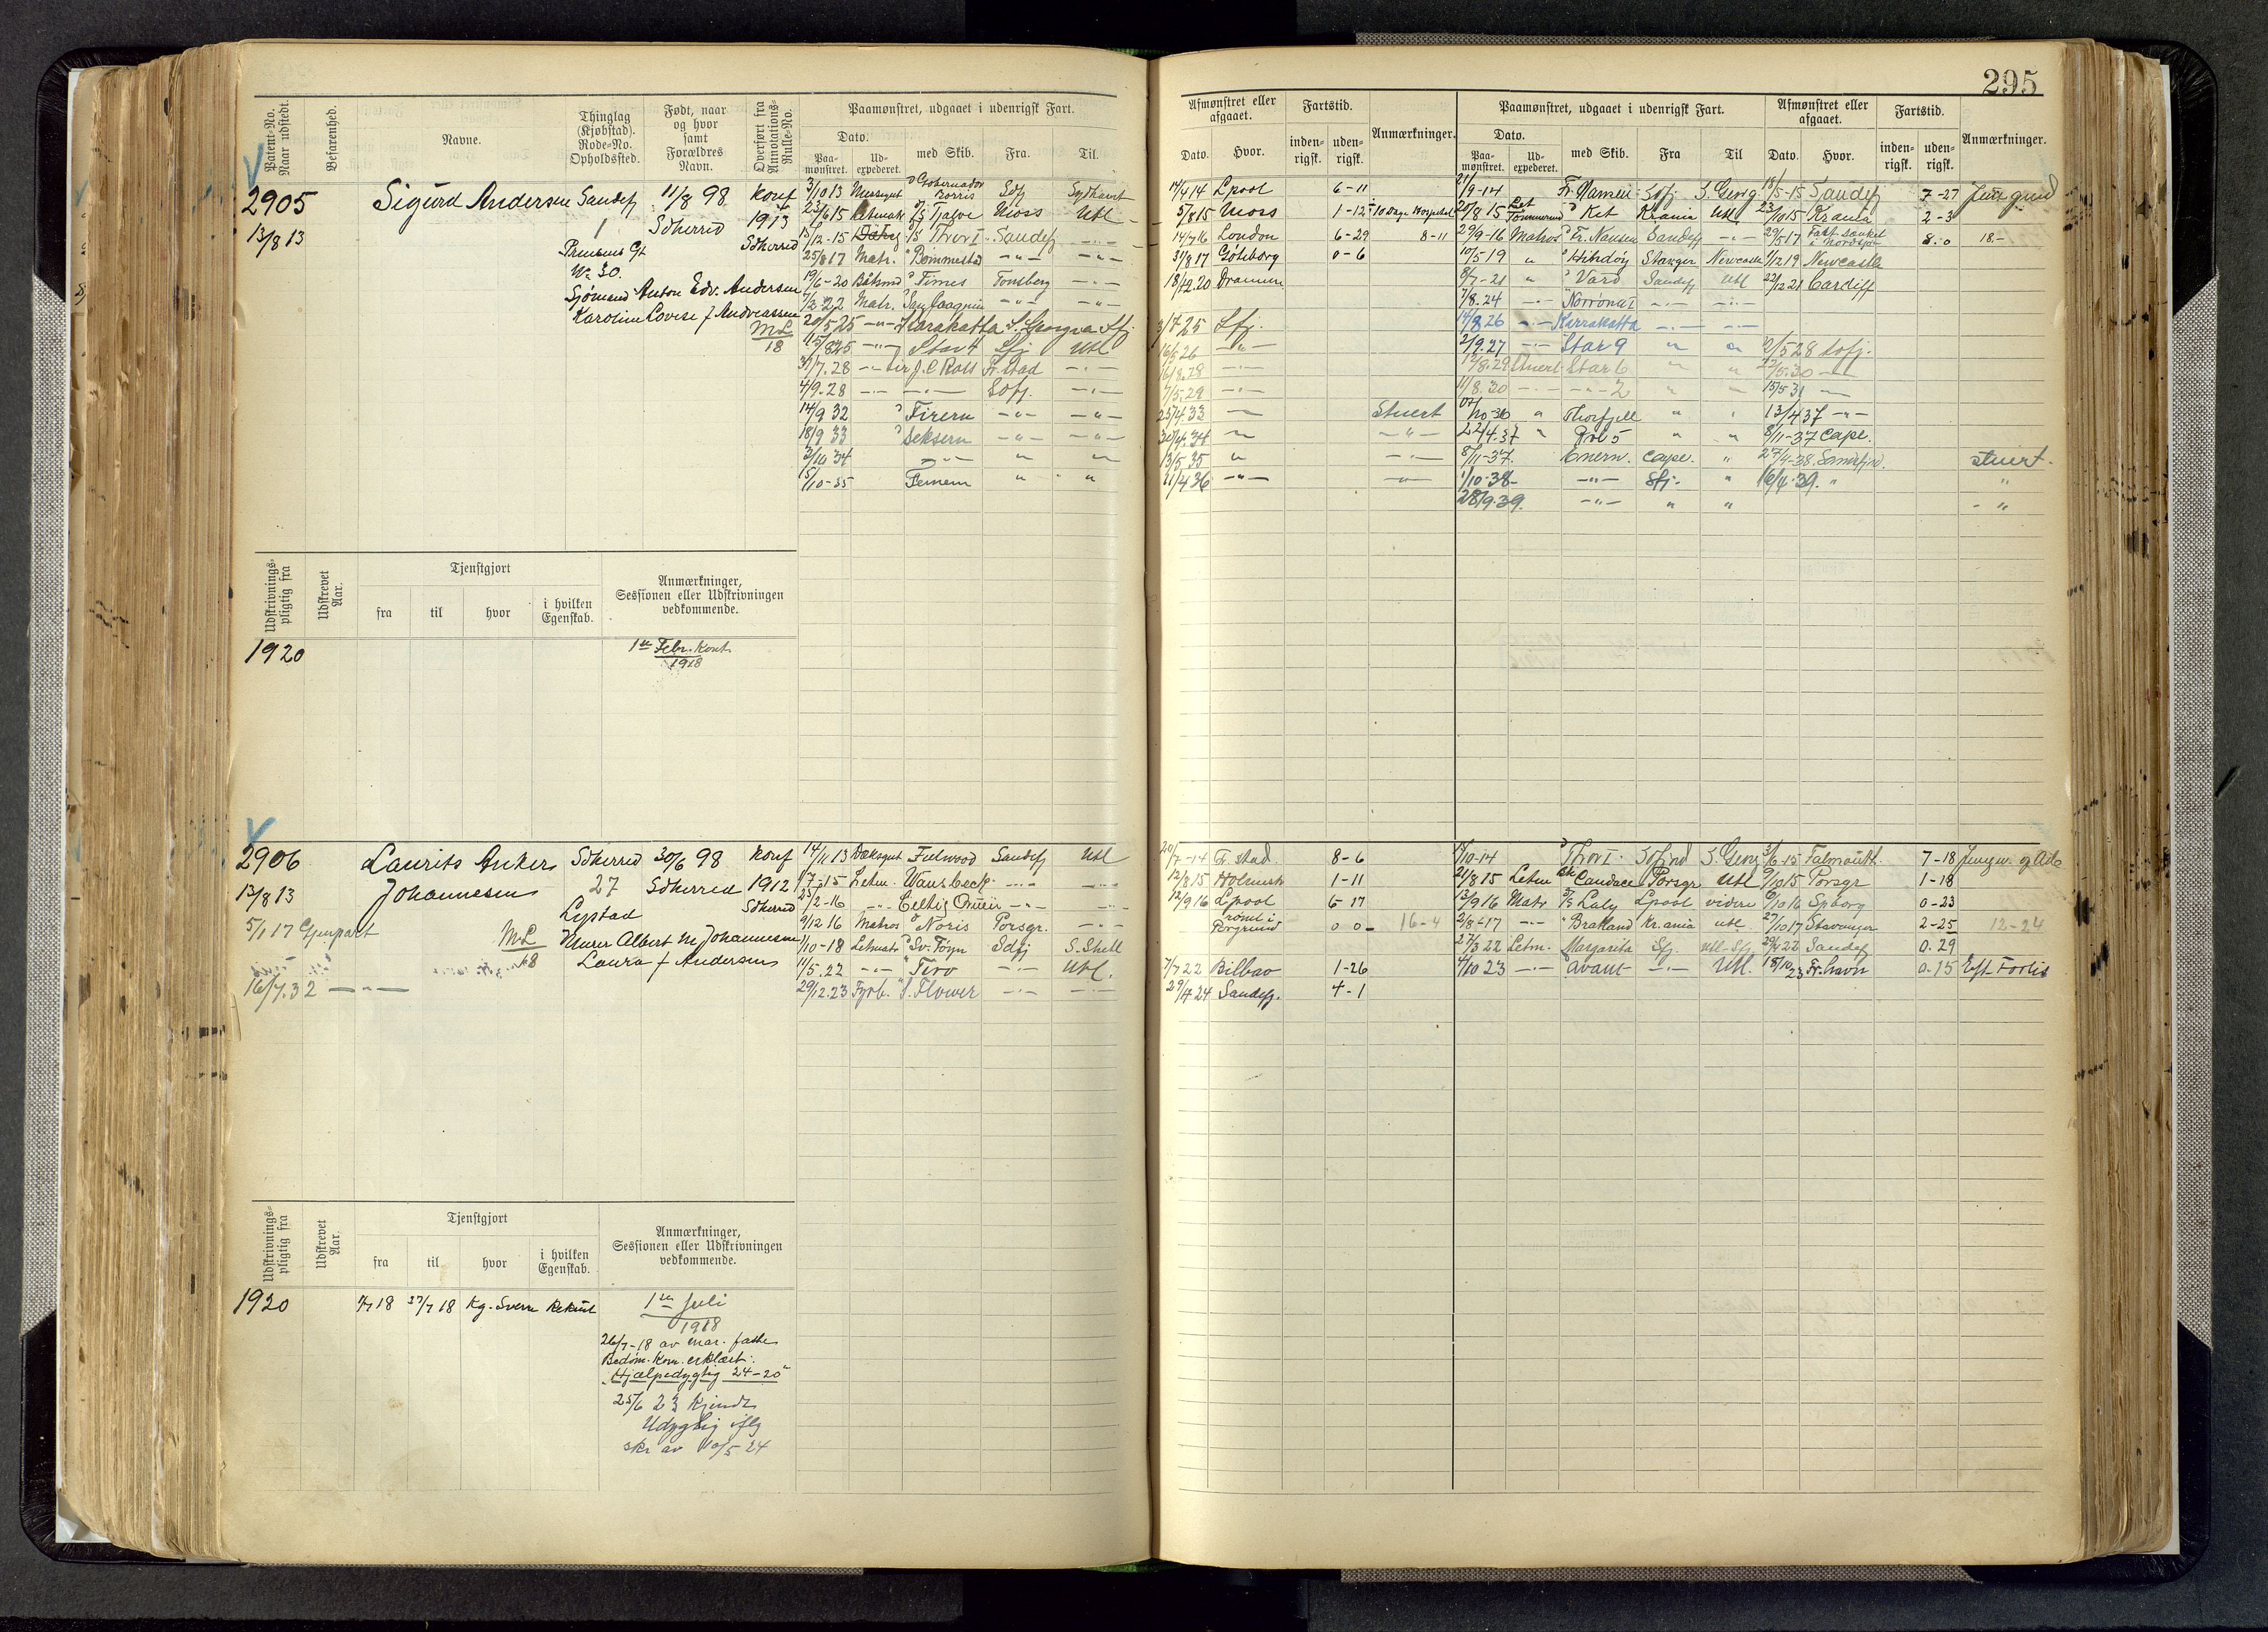 295
Patent-No. Naar udstedt.
Befarenhed.
Navne.
Thinglag (Kjøbstad). Rode-No. Opholdssted.
Født, naar og hvor samt Forældres Navn.
Overført fra Annotations-Rulle-No.
Paamønstret, udgaaet i udenrigsk Fart.
Dato.
Paa-mønstret.
Ud-expederet.
med Skib.
Fra.
Til.
Afmønstret eller afgaaet.
Dato.
Hvor.
Fartstid.
inden-rigsk.
uden-rigsk.
Anmærkninger.
Paamønstret, udgaaet i udenrigsk Fart.
Dato.
Paa-mønstret.
Ud-expederet.
med Skib.
Fra
Til
Afmønstret eller afgaaet.
Dato.
Hvor.
Fartstid.
inden-rigsk.
uden-rigsk.
Anmærkninger.
2905 Sigurd Andersen Sandefj 11/8 98 Konf
13/8 13 1 Sdherred 1913
Sdherred
No 30.
Sjømand Anton Edv. Andersen
Karoline Lovise f Andreassen
ML
18
3/10 13 Messegut Gobernador Borries Sdfj Sydhavet 14/4 14 Lpool 6-11
23/6 15 Letmatr Tjalve Moss Utl 5/8 15 Moss 1-12 10 Dage Hospital
12-15 Thor I Sandefj -"- 14/7 16 London 6-29 8-11
25/8 17 Matr. Bommestad -"- -"- 31/8 17 Göteborg 0-6
19/6-20 Fimes Tønsberg -"- 18/12.20 Drammen
7/3 22 Matr. -"- -"-
20/5 25 -"- Karakatta S. Georgia Sfj. 3/7 25 Sfj.
15/8 25 -"- Star 4 Sfj Utl 16/5 26 -"-
31/7.28 -"- J. C Ross Fr.stad -"- 16/8.28 -"-
4/9.28 -"- -"- Sdfj. -"- 7/5.29 -"-
14/9 32 Firern -"- -"- 25/4 33 -"- Stuert
18/9 33 Seksern -"- -"- 30/4.34 -"- -"-
3/10 34 -"- " " 13/5 35 " -"-
5/10-35 Femern " " 11/4 36 -"- -"-
21/9-14 Fr. Nansen Sdfj S. Georg 18/5-15 Sandefj 7-27 Jungmd
20/8 15 Let Tømmermd Ket Krania Utl 23/10 15 Krania 2-3
29/9-16 Matros Fr. Nansen Sandefj -"- 29/5 17 Fart. sænket i Nordsjø 8-0 18.-
10/5-19 " Stavger Newcastle 1/12 19 Newcastle
8/7-21 " Vard Sandefj Utl 22/12 21 Cardiff
7/8.24 -"- Norrøna I -"- -"-
14/8 26 -"- Karrakatta -"- -"-
2/9.27 -"- Star 9 " " 10/5 28 Sdfj.
12/8.29 Stuert Star 6 " " 22/5.30 -"-
11/8.30 -"- -"- 2 " " 15/5 31 -"-
07/10-36 " Thorfjell " " 13/4 37 -"-
22/4.37 " Pol 5 " " 8/11-37 Cape.
8/11-37. Enern. Cape. " 27/4-38. Sandefjord. stuert.
1/10-38- -"- Sfj. " 16/4.39. " "
28/9.39. -"- " " - "
Udskrivnings-pligtig fra
Udskrevet Aar.
Tjenstgjort
fra
til
hvor
i hvilken Egenskab.
Anmærkninger, Sessionen eller Udskrivningen vedkommende.
1920 1ste Febr. Kont.
1918
2906 Laurits Anker Sdherred 30/6 98 Konf
13/8 13 Johannesen 27 Sdherred 1912
Lystad Sdherred
5/1 17 Gjenpart ML Murer Albert M. Johannesen
18 Laura f Andersen
16/7.32 -"-
14/11 13 Dæksgut Fielwood Sandefj Utl 20/7-14 Fr.stad 8-6
7-15 Letm. Wansbeck -"- -"- 12/8 15 Holmestr 1-11
25/2-16 -"- Celtic Queen -"- -"- 12/9 16 Lpool 6-17
9/12 16 Matros Noris Porsgr. -"- rømt i Porsgrund 0 0- 16-4
1/10-18 Letmatr Sv. Føyn Sdfj S. Shetl
11/5.22 -"- Tiro -"- Utl. 7/7 22 Bilbao 1-26
29/12.23 Fyrb. S. Flower -"- -"- 29/4 24 Sandefj. 4-1
10-14 Thor I. Sdfjord S. Georg 3/6-15 Falmouth. 7-18
21/8 15 Letm Bk Candace Porsgr Utl 9/10 15 Porsgr 1-18
13/9 16 Matr Laly Lpool videre 6/10 16 Spborg 0-23
2/8-17 -"- Bratland Kr.ania utl. 27/10 17 Stavanger 2-25 12-24
27/3 22 Letm. Margarita Sfj. utl-Sfj. 29/4 22 Sandefj 0-29
4/10 23 -"- Avant -"- Utl. 18/10 23 Fr.havn 0-15 Eft Fortis
Udskrivnings-pligtig fra
Udskrevet Aar.
Tjenstgjort
fra
til
hvor
i hvilken Egenskab.
Anmærkninger, Sessionen eller Udskrivningen vedkommende.
1920 1/7 18 27/7 18 Kg. Sverre Rekrut 1ste Juli
1918
26/7-18 av mar. faste
Bedøm. Kom. erklært:
"Hjælpedygtig 24-20"
25/6 23 Kjendt
Udygtig iflg
skr av 10/5 24